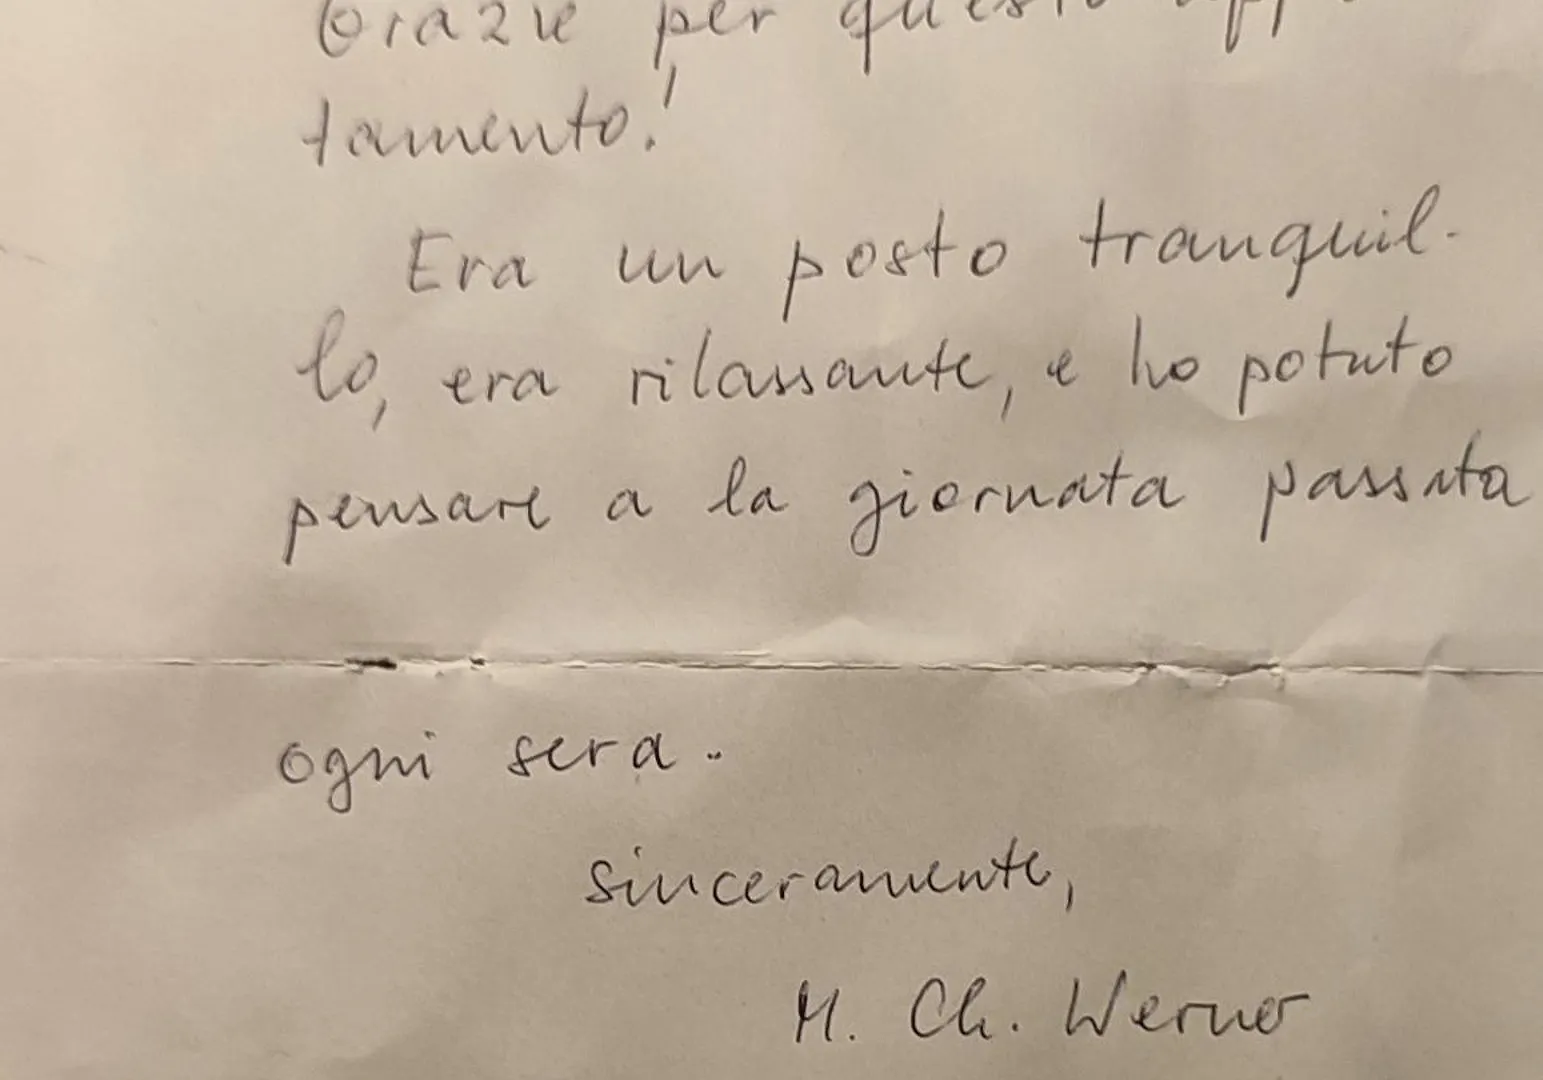 Grazie per questo app
tamento!
Era un posto tranquil-
lo, era rilassante, e ho potuto
pensare a la giornata passata
ogni sera.
sinceramente,
M. Ch. Werner